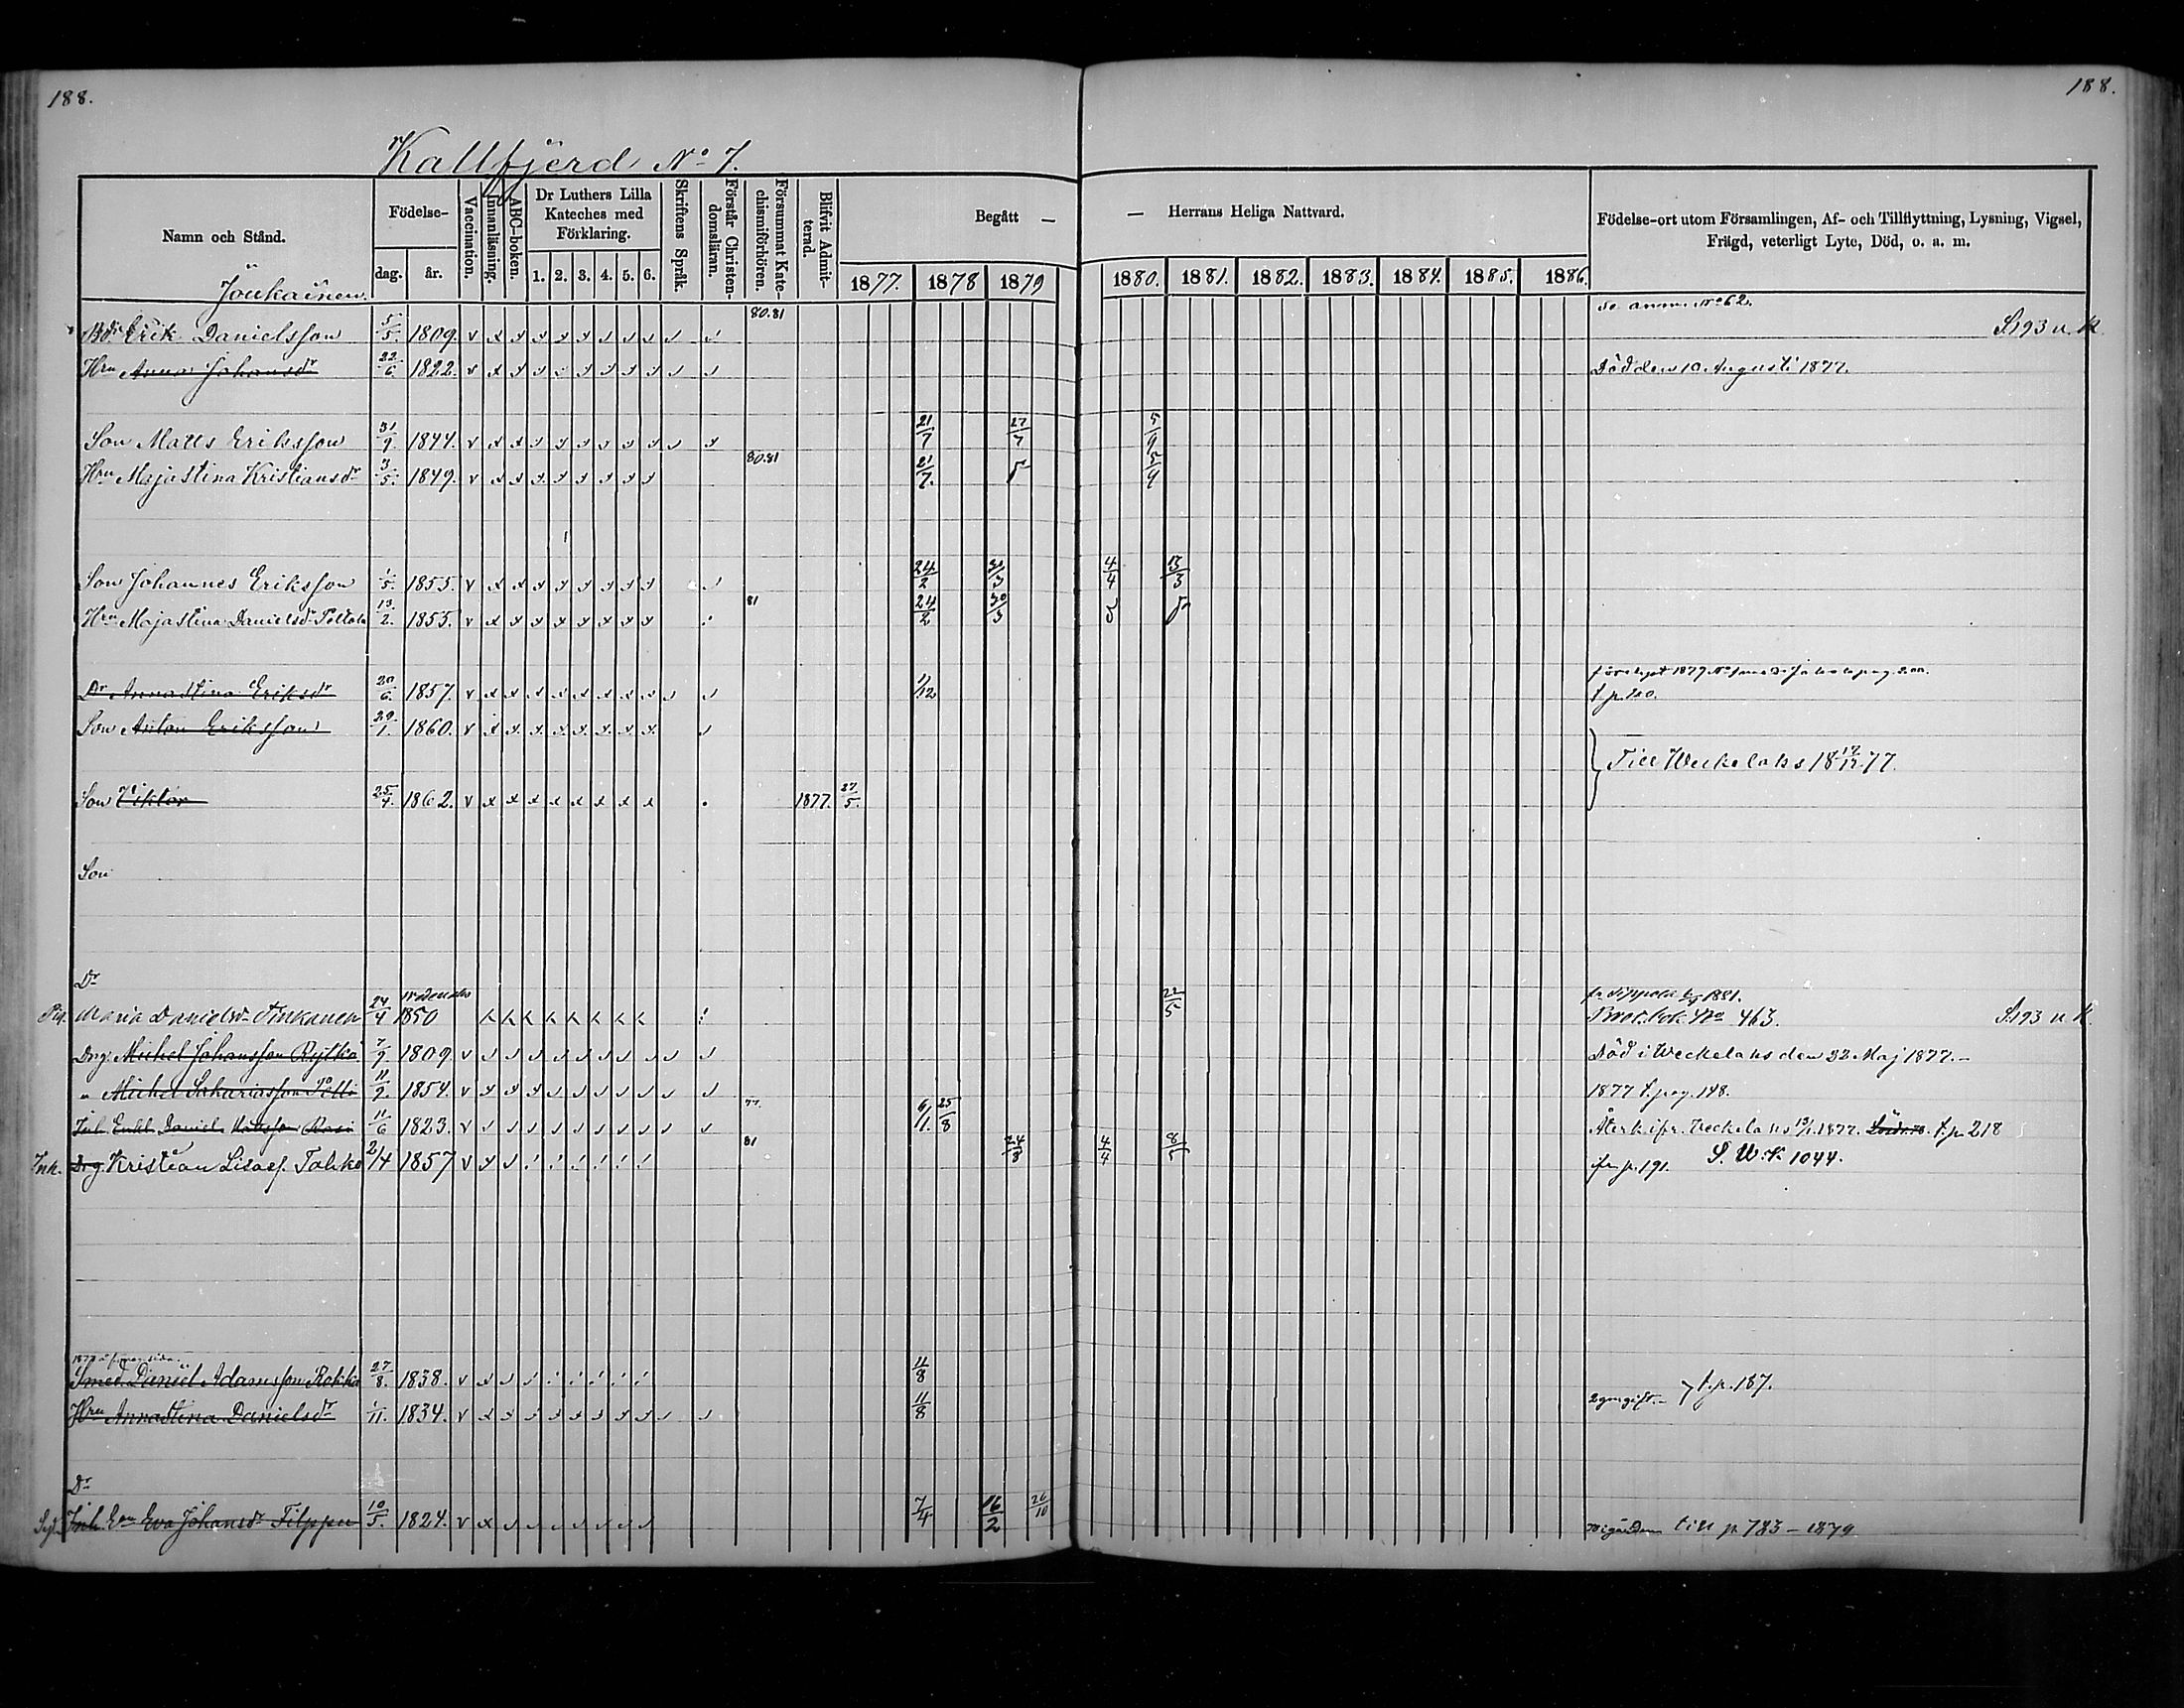 188.
188.
Kallfjerd No 7.
Namn och Stånd.
Födelse-
dag.
år.
Vaccination.
Innanläsning.
ABC-boken.
Dr Luthers Lilla Kateches med Förklaring.
1. 2. 3. 4. 5. 6.
Skriftens Språk.
Förstår Christen-domsläran.
Försummat Kate-chismiförhören.
Blifvit Admit-terad.
Begått — — Herrans Heliga Nattvard.
1877. 1878 1879 1880. 1881. 1882. 1883. 1884. 1885. 1886.
Födelse-ort utom Församlingen, Af- och Tillflyttning, Lysning, Vigsel,
Frägd, veterligt Lyte, Död, o. a. m.
Joukainen.
Erik Danielsson 5/5. 1809. 80.81 S. 193 u. K.
Hru Anna Johansdr 22/6. 1822. Död den 10 Augusti 1877.
Son Matts Eriksson 31/9. 1844. 21/7 27/7 5/9
Hru Majastina Kristiansdr 3/5. 1849. 80.81 21/7. 5/9
Son Johannes Eriksson 1/5. 1855. 24/2 30/3 4/4 13/3
Hru Majastina Danielsdr 13/2. 1853. 81 24/2 30/3
Dr Annastina Eriksdr 20/6 1857. 1/12
Son Anton Eriksson 29/1 1860.
Till Weckelaks 18 17/12 77.
Son Viktor 25/4. 1862. 1877. 27/5.
Son
Dr
Maria Danielsdr Tinkanen 24/4 1850 22/5 463. S. 193 u K.
Drg. Michel Johansson Rytkö 7/9 1809 Död i Weckelaks den 22 Maj 1877.
" Michel Sakariasson Pelli 11/9. 1854. 1877 t. pag. 148.
Inh. Enkl. Daniel Mattsson Rasi 11/6 1823. 77. 6/1. 25/8 t. p 218
Inh. Drg. Kristian Lisas. Tahko 2/4 1857 81 24/8 4/4 8/5 fr. p. 191. S. W. K. 1044.
Smed Daniel Adamsson Rokka 27/8. 1838. 11/8 t. p. 187.
Hru Annastina Danielsdr 1/11. 1834. 11/8 2 gm gift.
Dr
Inh. Ean Eva Johansdr Filppu 10/5. 1824. 7/4 16/2 26/10 till p 783 – 1879